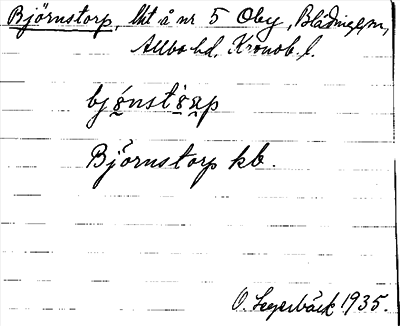 Björnstorp, lht å nr 5 Oby, Blädinge sn,
Allbo hd. Kronob. l.
Björnstorp kb.
O. Segerbäck 1935.